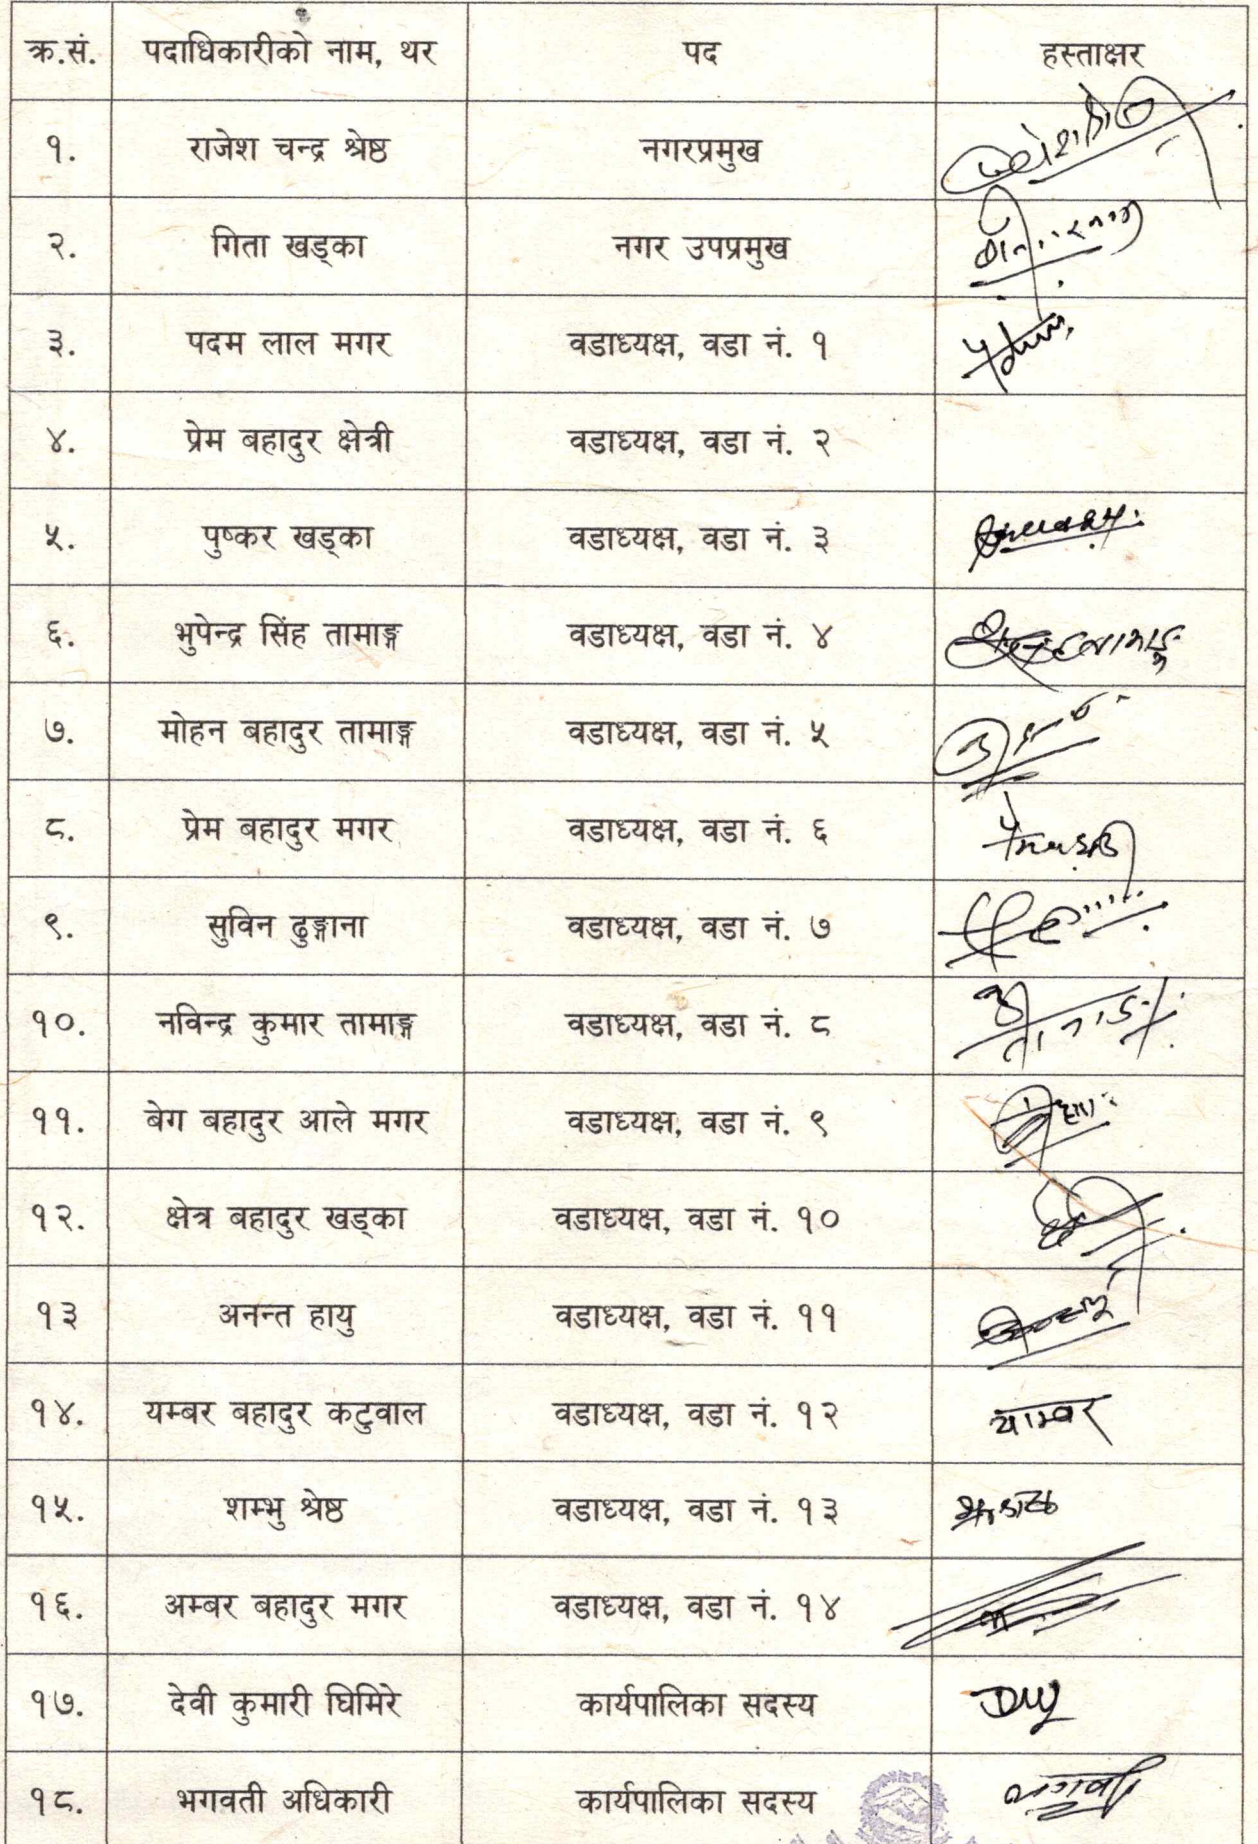 क्र.सं. पदाधिकारीको नाम, थर पद हस्ताक्षर
१. राजेश चन्द्र श्रेष्ठ नगरप्रमुख
२. गिता खड्का नगर उपप्रमुख
३. पदम लाल मगर वडाध्यक्ष, वडा नं. १
४. प्रेम बहादुर क्षेत्री वडाध्यक्ष, वडा नं. २
५. पुष्कर खड्का वडाध्यक्ष, वडा नं. ३
६. भुपेन्द्र सिंह तामाङ्ग वडाध्यक्ष, वडा नं. ४
७. मोहन बहादुर तामाङ्ग वडाध्यक्ष, वडा नं. ५
८. प्रेम बहादुर मगर वडाध्यक्ष, वडा नं. ६
९. सुविन ढुङ्गाना वडाध्यक्ष, वडा नं. ७
१०. नविन्द्र कुमार तामाङ्ग वडाध्यक्ष, वडा नं. ८
११. बेग बहादुर आले मगर वडाध्यक्ष, वडा नं. ९
१२. क्षेत्र बहादुर खड्का वडाध्यक्ष, वडा नं. १०
१३ अनन्त हायु वडाध्यक्ष, वडा नं. ११
१४. यम्बर बहादुर कटुवाल वडाध्यक्ष, वडा नं. १२ याम्वर
१५. शम्भु श्रेष्ठ वडाध्यक्ष, वडा नं. १३
१६. अम्बर बहादुर मगर वडाध्यक्ष, वडा नं. १४
१७. देवी कुमारी घिमिरे कार्यपालिका सदस्य
१८. भगवती अधिकारी कार्यपालिका सदस्य